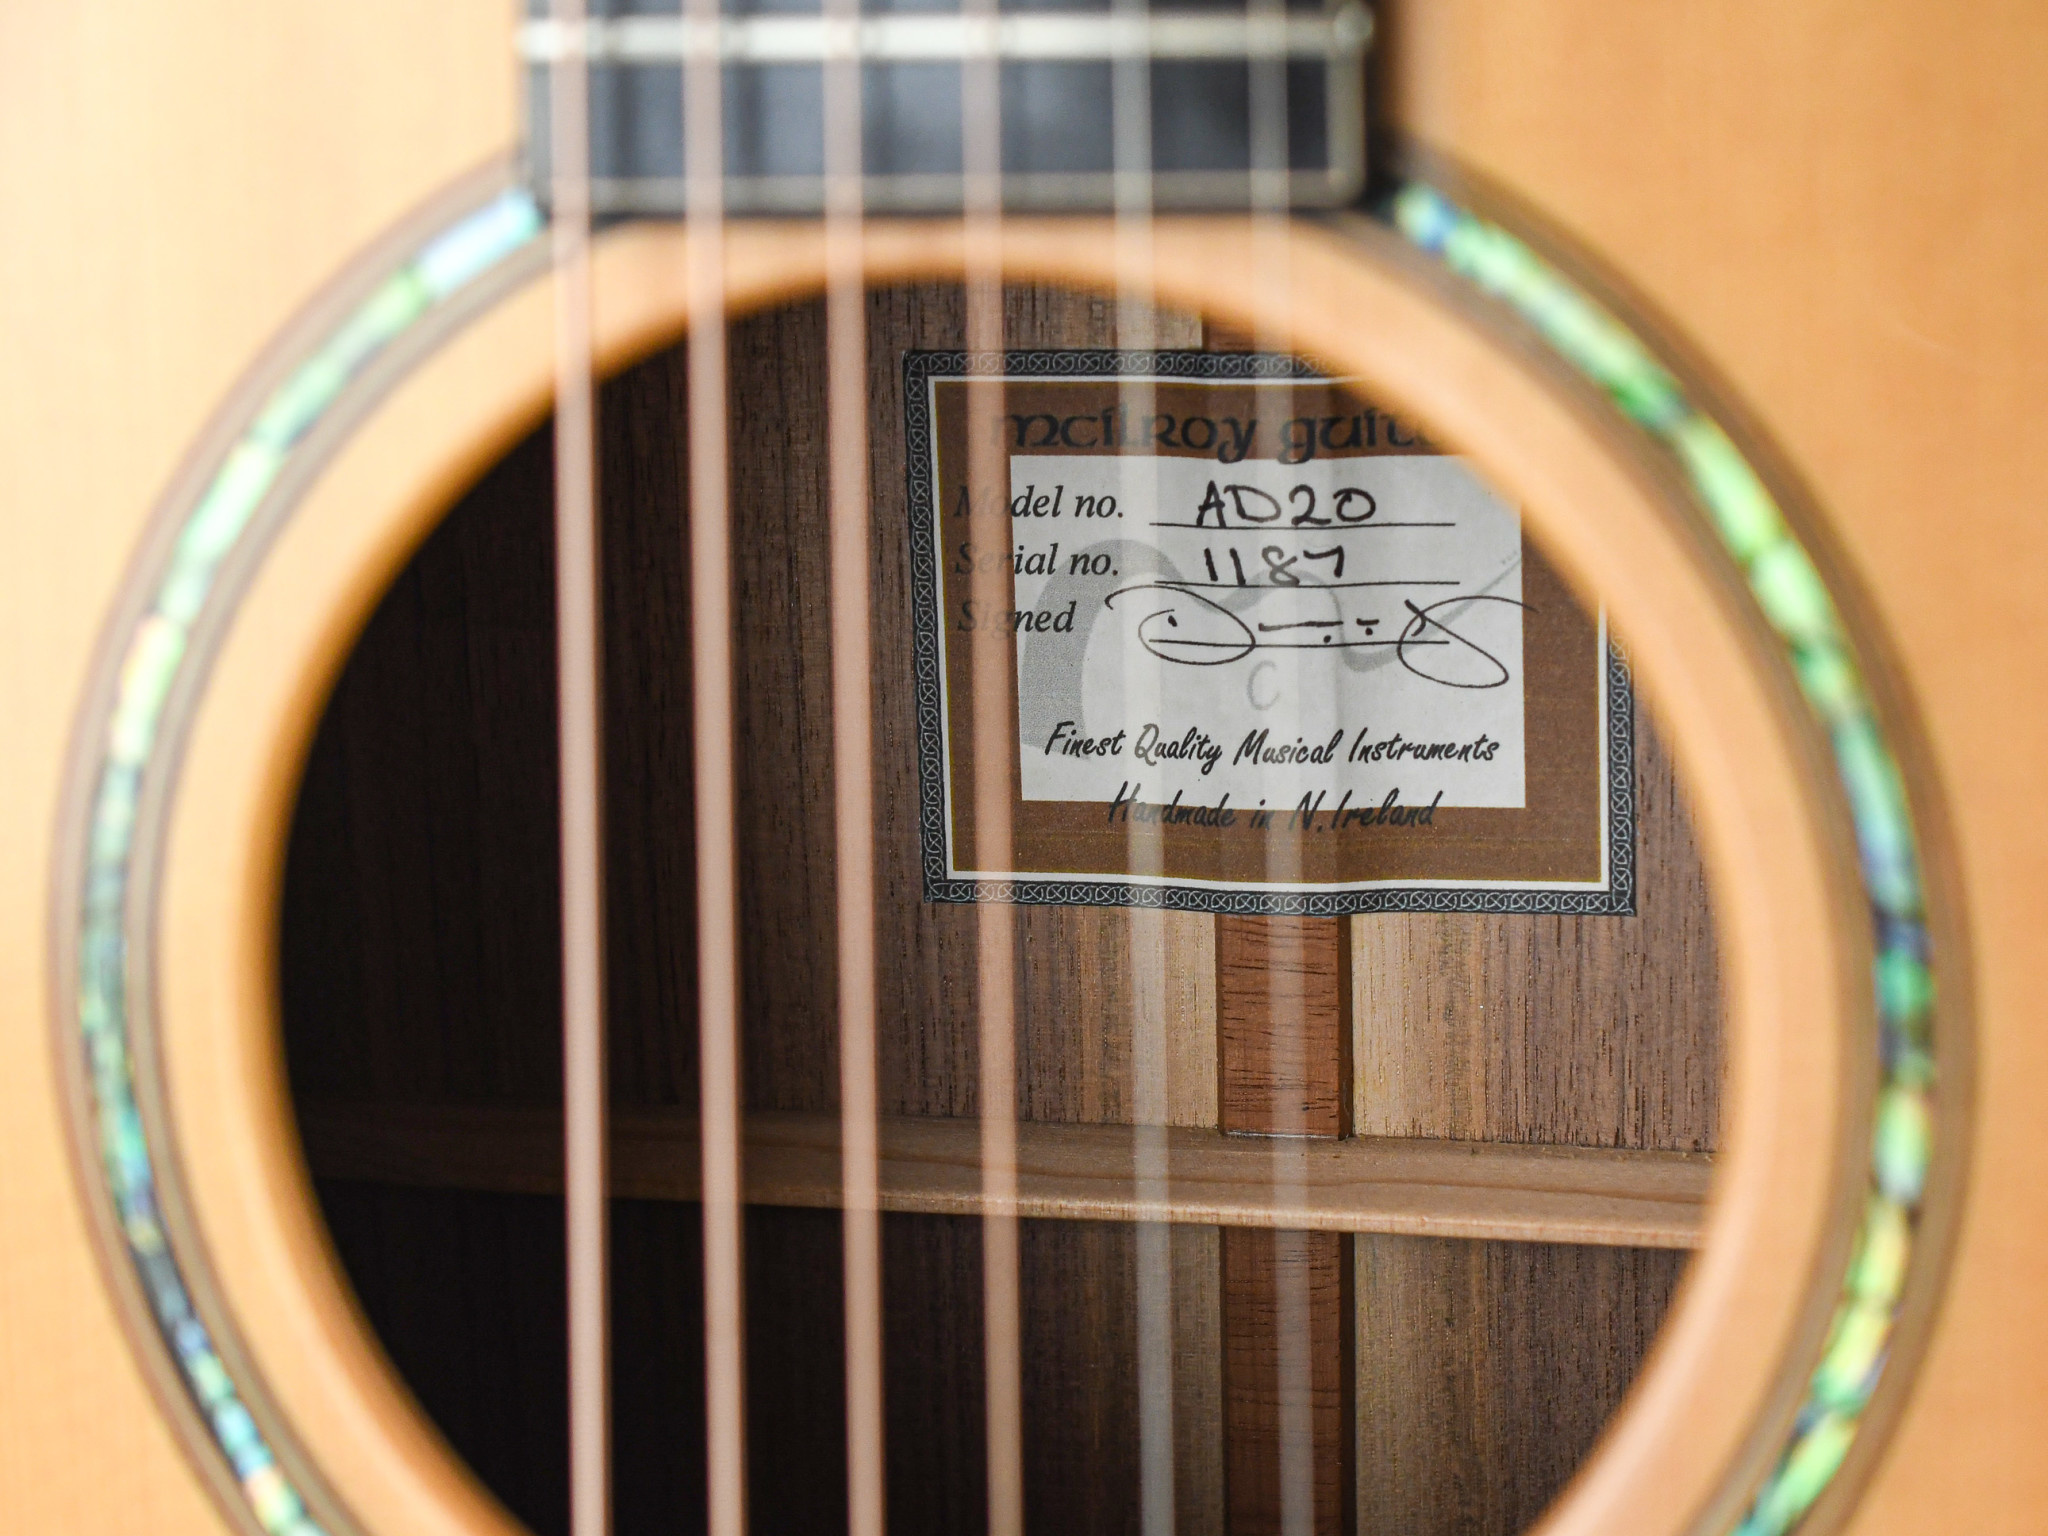 mcilroy guita
Model no. AD20
Serial no. 1187
Signed
C
Finest Quality Musical Instruments
Handmade in N.Ireland